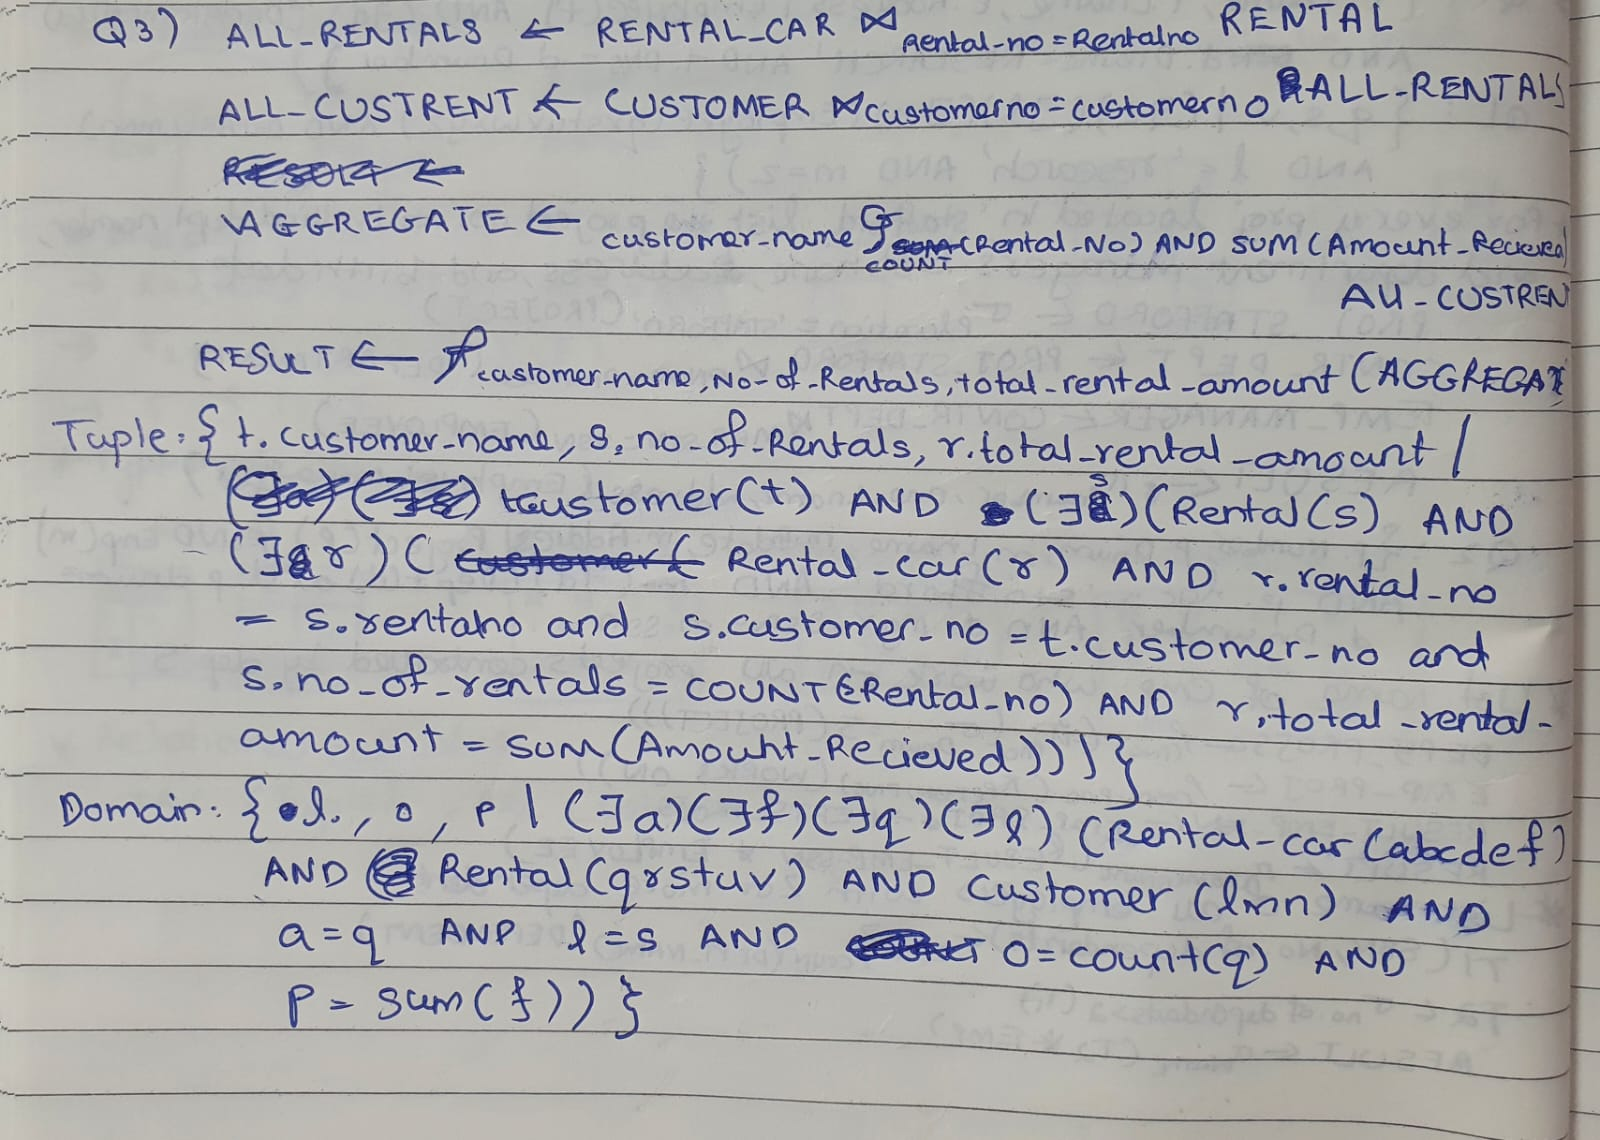 Q3) ALL_RENTALS ← RENTAL_CAR ⋈ Rental-no = Rentalno RENTAL
ALL_CUSTRENT ← CUSTOMER ⋈ customerno = customerno ALL-RENTALS
AGGREGATE ← customer-name G COUNT (Rental-No) AND SUM (Amount-Recieved)
All-CUSTREN
RESULT ← ρ customer-name, No-of-Rentals, total-rental-amount (AGGREGAT
Tuple: { t. customer-name, s. no-of-Rentals, r.total-rental-amount |
Customer(t) AND (∃s)(Rental(s) AND
(∃r)( Rental-car(r) AND r.rental_no
= s.rentalno and s.customer-no = t.customer-no and
s.no-of-rentals = COUNT(Rental_no) AND r.total-rental-
amount = SUM(Amount-Recieved)))}
Domain: { l, o, p | (∃a)(∃f)(∃q)(∃l) (Rental-car (abcdef)
AND Rental(qrstuv) AND Customer (lmn) AND
a=q AND l=s AND O=count(q) AND
P = sum(f))}